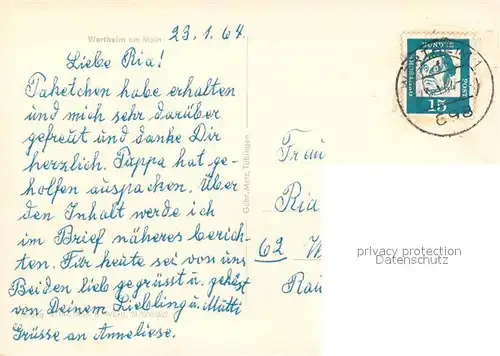 Wertheim am Main
23.1.64.
Liebe Ria!
Paketchen habe erhalten
und mich sehr darüber
gefreut und danke Dir
herzlich. Pappa hat ge-
holfen auspacken. Über
den Inhalt werde ich
im Brief näheres berich-
ten. Für heute sei von uns
Beiden lieb gegrüsst u. geküsst
von Deinem Liebling u. Mutti
Grüsse an Anneliese.
Gebr. Metz, Tübingen
DEUTSCHE
BUNDES
POST
15
Ria
62 W
privacy protection
Datenschutz